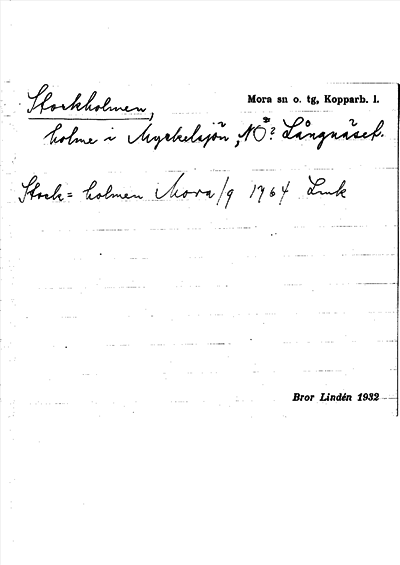 Stockholmen,
Mora sn o. tg, Kopparb. l.
holme i Myckelsjön, NÖ Långnäset.
Stock= holmen Mora/9 1764 Lmk
Bror Lindén 1932